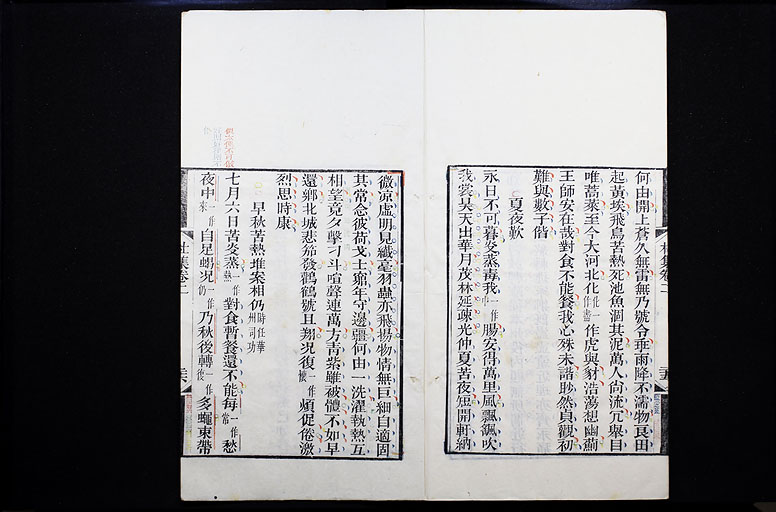 何由開上蒼久無雷無乃號令乖雨降不濡物良田
起黃埃飛鳥苦熱死池魚涸其泥萬人尚流冗舉目
唯蒿萊至今大河北化一作盡作虎與豺浩蕩想幽薊
王師安在哉對食不能餐我心殊未諧眇然貞觀初
難與數子偕
夏夜歎
永日不可暮炎蒸毒我一作腸安得萬里風飄颻吹
我裳昊天出華月茂林延疎光仲夏苦夜短開軒納
微涼虛明見纖毫羽蟲亦飛揚物情無巨細自適固
其常念彼荷戈士窮年守邊疆何由一洗濯執熱互
相望竟夕擊刁斗喧聲連萬方青紫雖被體不如早
還鄉北城悲笳發鸛鶴號且翔況復一作煩促倦激
烈思時康
早秋苦熱堆案相仍時任華州司功
七月六日苦炎蒸一作熱對食暫餐還不能每一作常愁
夜中一作來自足蝎況一作仍乃秋後轉一作復多蠅束帶
杜集卷二